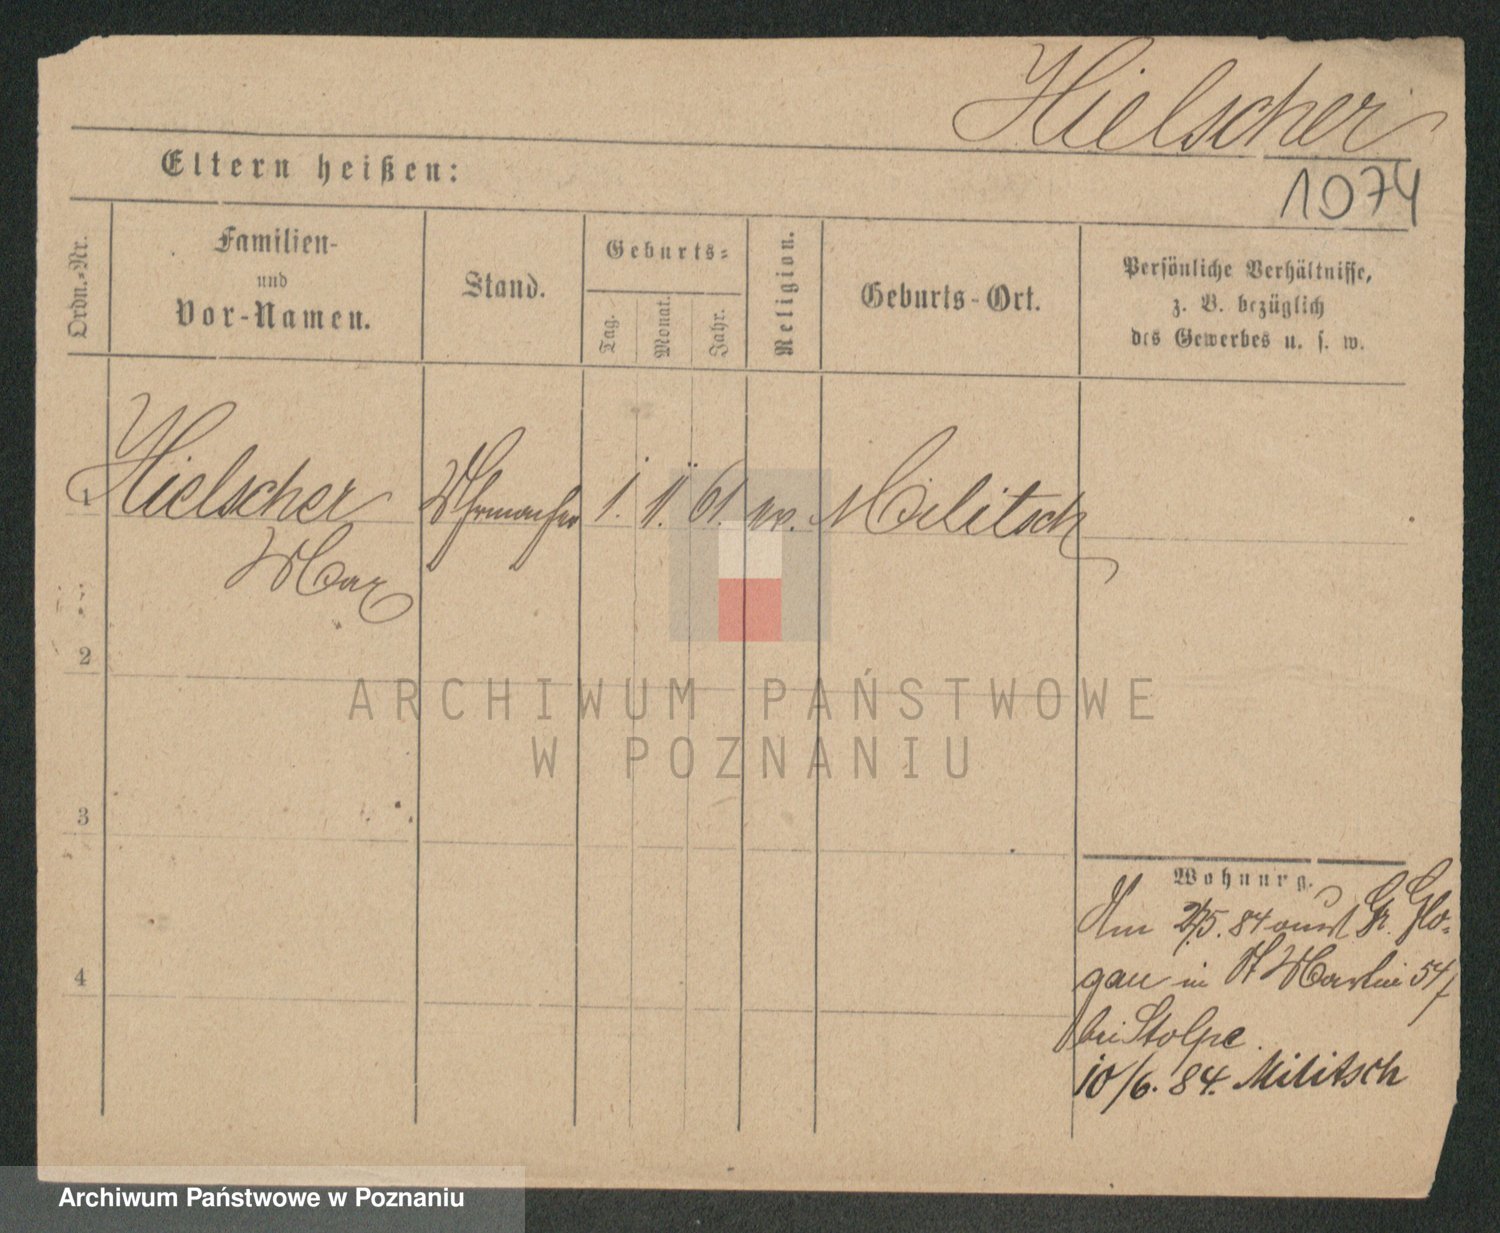 Hielscher
1074
Eltern heißen:
Ordn.-Nr.
Familien-
und
Vor-Namen.
Stand.
Geburts-
Tag.
Monat.
Jahr.
Religion.
Geburts-Ort.
Persönliche Verhältnisse,
z. B. bezüglich
des Gewerbes u. s. w.
1 Hielscher Uhrmacher 1. 11. 61. ev. Militsch
Max
2
ARCHIWUM PAŃSTWOWE
W POZNANIU
3
Wohnung.
Am 27/5. 84 aus Gr. Glo-
gau in St Martin 54/
4
bei Stolpe.
10/6. 84. Militsch
Archiwum Państwowe w Poznaniu